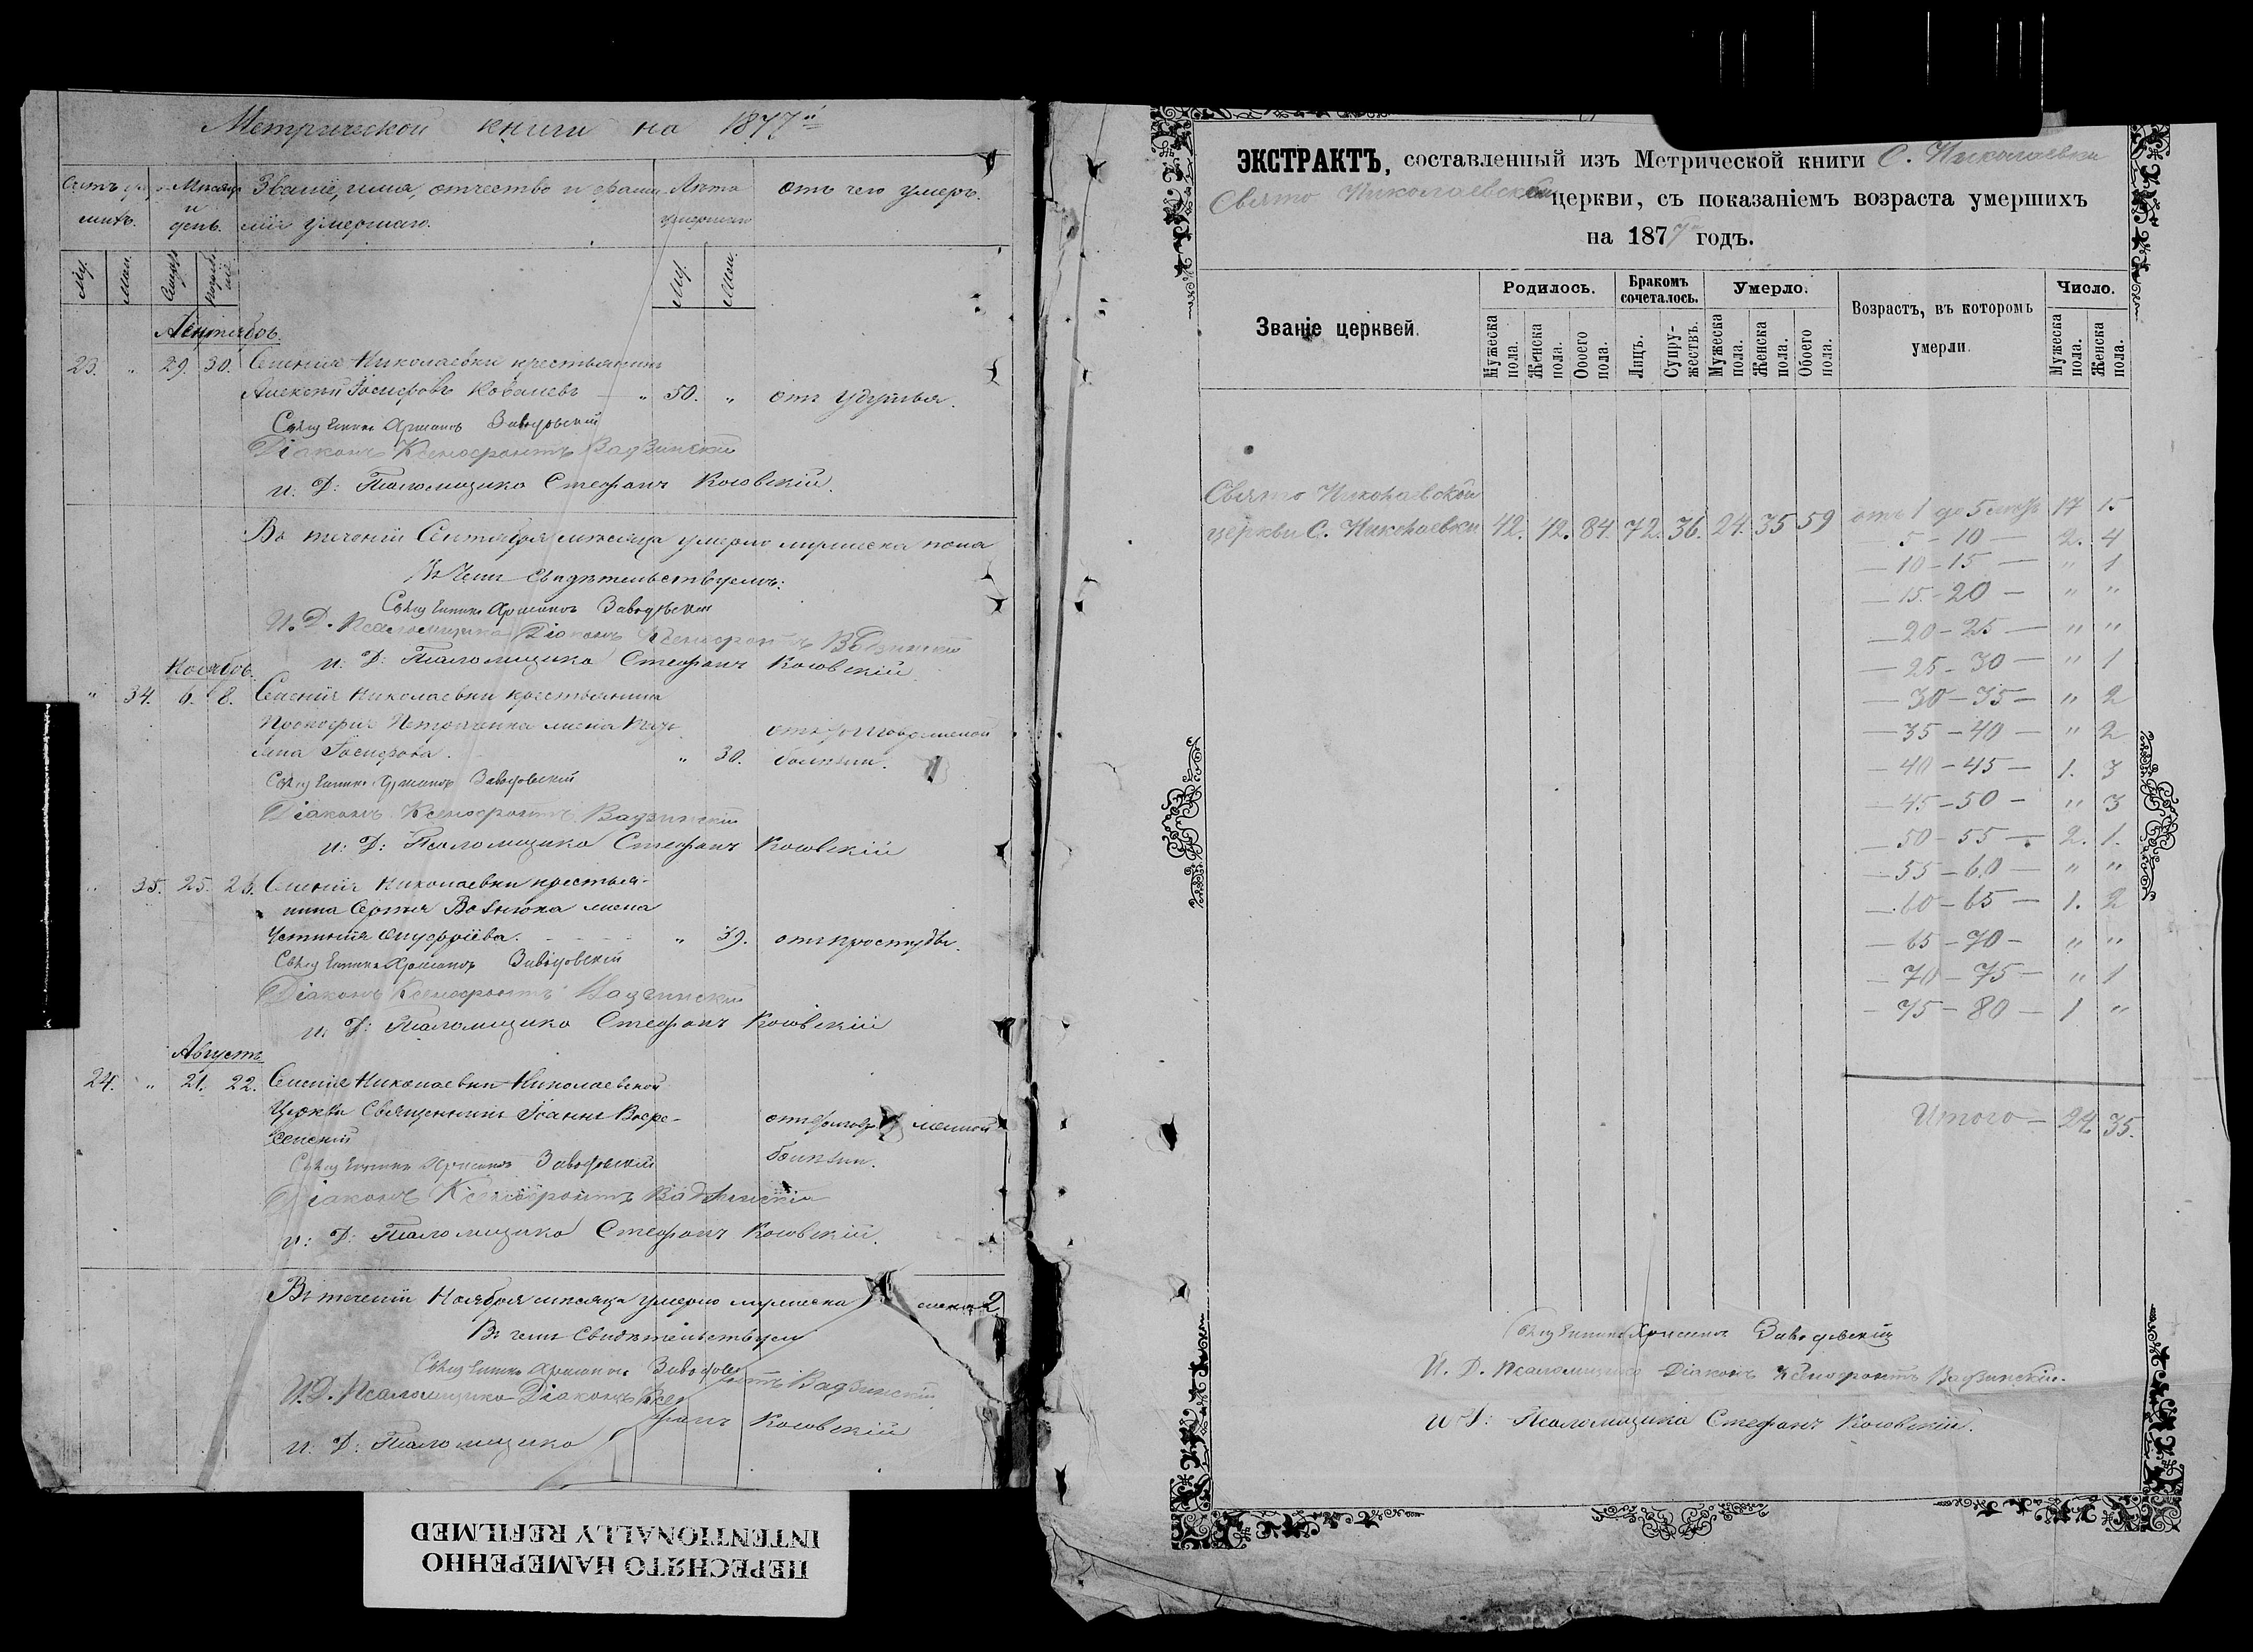 Метрической книги на 1877й
Мѣсяцъ и день.
Званіе, имя, отчество и фамилія умершаго.
Лѣта умершаго
отъ чего умеръ.
Му. Жен.
Му. Жен.
Сентябрь.
23. " 29. 30. Селенія Николаевки крестьянинъ
Алексѣй Іосифовъ Ковалевъ — 50. " отъ удушья.
Священникъ Заводовскій
Діаконъ Ксенофонтъ Вадзинскій
И. Д. Псаломщика Стефанъ Косовскій.
Въ теченіи Сентября мѣсяца умерло мужеска пола
В чемъ свидѣтельствуемъ:
Священникъ Заводовскій
И. Д. Псаломщика Діаконъ Ксенофонтъ Вадзинскій
И. Д. Псаломщика Стефанъ Косовскій.
Ноябрь.
" 34. 6. 8. Селенія Николаевки крестьянина
Прокофія жена
Іосифова. " 30. отъ долговременной болѣзни.
Священникъ Заводовскій
Діаконъ Ксенофонтъ Вадзинскій
И. Д. Псаломщика Стефанъ Косовскій
" 35. 25. 26. Селенія Николаевки крестья-
нина Сергѣя жена
Устинія Онуфріева. " 39. отъ простуды.
Священникъ Заводовскій
Діаконъ Ксенофонтъ Вадзинскій
И. Д. Псаломщика Стефанъ Косовскій
Августъ
24. " 21. 22. Селенія Николаевки Николаевской
Церкви Священникъ Іоаннъ Воскре-
сенскій отъ долговременной болѣзни.
Священникъ Заводовскій
Діаконъ Ксенофонтъ Вадзинскій
И. Д. Псаломщика Стефанъ Косовскій.
Въ теченіи Ноября мѣсяца умерло мужеска женска 2
Въ чемъ свидѣтельствуемъ
Священникъ
И. Д. Псаломщика Діаконъ Вадзинскій
И. Д. Псаломщика Косовскій
ПЕРЕСНЯТО НАМЕРЕННО
INTENTIONALLY REFILMED
ЭКСТРАКТЪ, составленный изъ Метрической книги С. Николаевки
Свято Николаевской церкви, съ показаніемъ возраста умершихъ
на 1877 годъ.
Званіе церквей.
Родилось.
Бракомъ сочеталось.
Умерло.
Возрастъ, въ которомъ умерли.
Число.
Мужеска пола. Женска пола. Обоего пола. Лицъ. Супружествъ. Мужеска пола. Женска пола. Обоего пола. Мужеска пола. Женска пола.
Свято Николаевской
церкви С. Николаевки 42. 42. 84. 72. 36. 24. 35 59
отъ 1 до 5 17 15
— 5 - 10 — 2. 4
— 10 - 15 — " 1
— 15 - 20 — " "
— 20 - 25 — " "
— 25 - 30 — " 1
— 30 - 35 — " 2
— 35 - 40 — " 2
— 40 - 45 — 1. 3
— 45 - 50 — " 3
— 50 - 55 — 2. 1.
— 55 - 60 — " "
— 60 - 65 — 1. 2
— 65 - 70 — " "
— 70 - 75 — " 1
— 75 - 80 — 1 "
Итого — 24. 35.
Священникъ Заводовскій
И. Д. Псаломщика Діаконъ Ксенофонтъ Вадзинскій.
И. Д. Псаломщика Стефанъ Косовскій.